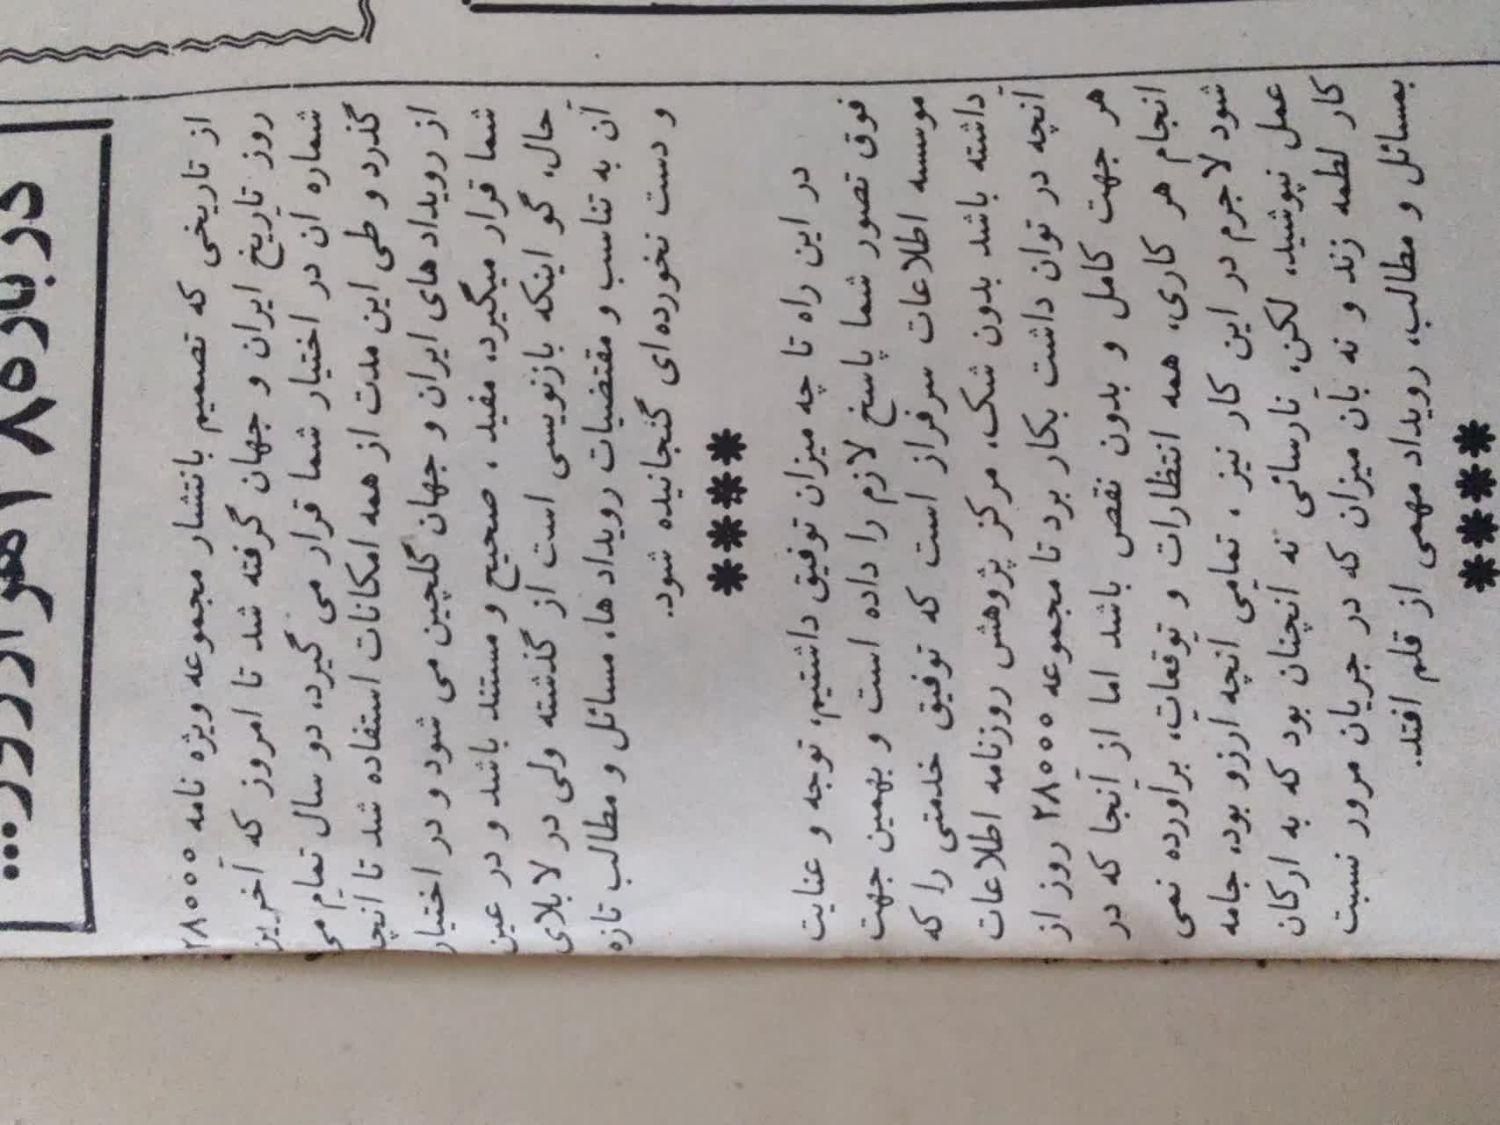 درباره ۲۸ هزار روز...
از تاریخی که تصمیم بانتشار مجموعه ویژه نامه ۲۸۰۰۰
روز تاریخ ایران و جهان گرفته شد تا امروز که آخرین
شماره آن در اختیار شما قرار می گیرد، دو سال تمام می
گذرد و طی این مدت از همه امکانات استفاده شد تا آنچه
از رویدادهای ایران و جهان گلچین می شود و در اختیار
شما قرار میگیرد، مفید ، صحیح و مستند باشد و در عین
حال، گو اینکه بازنویسی است از گذشته ولی در لابلای
آن به تناسب و مقتضیات رویدادها، مسائل و مطالب تازه
و دست نخورده ای گنجانیده شود.
****
در این راه تا چه میزان توفیق داشتیم، توجه و عنایت
فوق تصور شما پاسخ لازم را داده است و بهمین جهت
موسسه اطلاعات سرفراز است که توفیق خدمتی را که
داشته باشد بدون شک، مرکز پژوهش روزنامه اطلاعات
آنچه در توان داشت بکار برد تا مجموعه ۲۸۰۰۰ روز از
هر جهت کامل و بدون نقص باشد اما از آنجا که در
انجام هر کاری، همه انتظارات و توقعات، برآورده نمی
شود لاجرم در این کار نیز ، تمامی آنچه آرزو بود، جامه
عمل نپوشید، لکن، نارسائی نه آنچنان بود که به ارکان
کار لطمه زند و نه بآن میزان که در جریان مرور نسبت
بمسائل و مطالب، رویداد مهمی از قلم افتد.
****